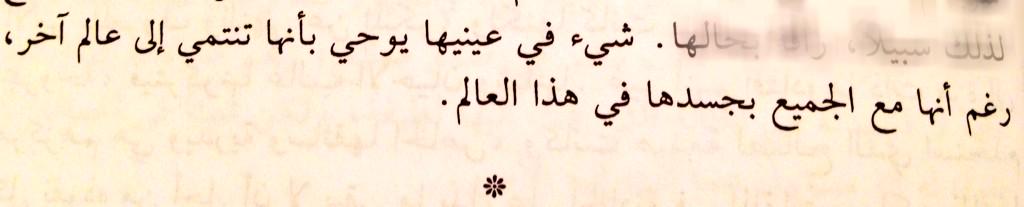 لذلك سبيلا، بحالها. شيء في عينيها يوحي بأنها تنتمي إلى عالم آخر،
رغم أنها مع الجميع بجسدها في هذا العالم.